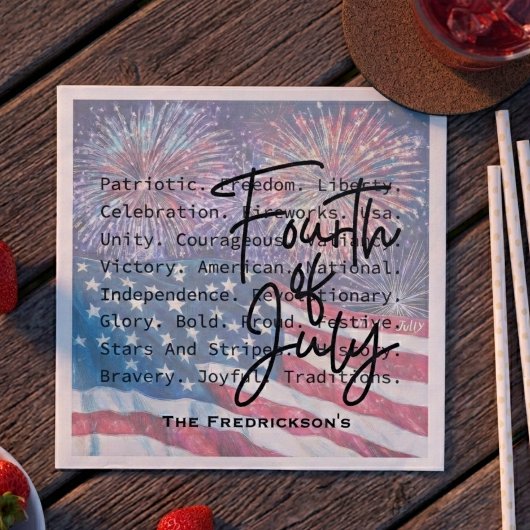 Patriotic. Freedom. Liberty.
Celebration. Fireworks. Usa.
Unity. Courageous. Valiance.
Victory. American. National.
Independence. Revolutionary.
Glory. Bold. Proud. Festive.
Stars And Stripes. History.
Bravery. Joyful. Traditions.
Fourth
of
July
JULLY
The Fredrickson's